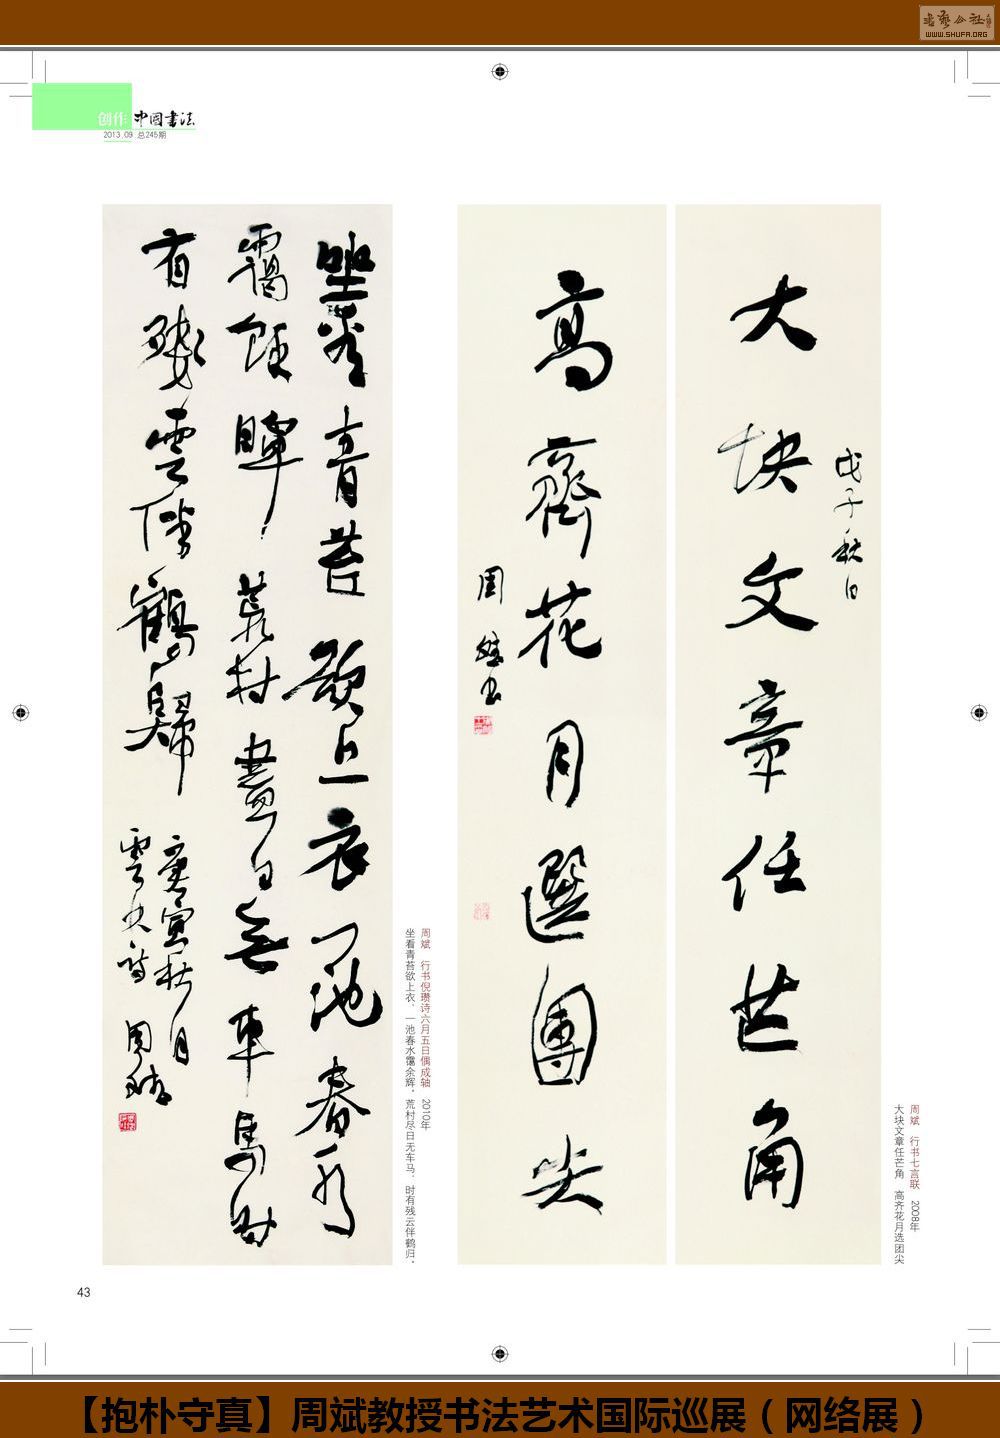 書藝公社
WWW.SHUFA.ORG
创作 中国書法
2013.09 总245期
大块文章任芒角
戊子秋日
高齊花月選團尖
周斌書
坐看青苔欲上衣一池春水
靄餘暉荒村盡日無車馬時
有殘雲伴鶴歸
庚寅秋月
雲林詩 周斌
周斌 行书七言联 2008年
大块文章任芒角 高齐花月选团尖
周斌 行书倪瓒诗六月五日偶成轴 2010年
坐看青苔欲上衣，一池春水霭余辉。荒村尽日无车马，时有残云伴鹤归。
43
【抱朴守真】周斌教授书法艺术国际巡展（网络展）